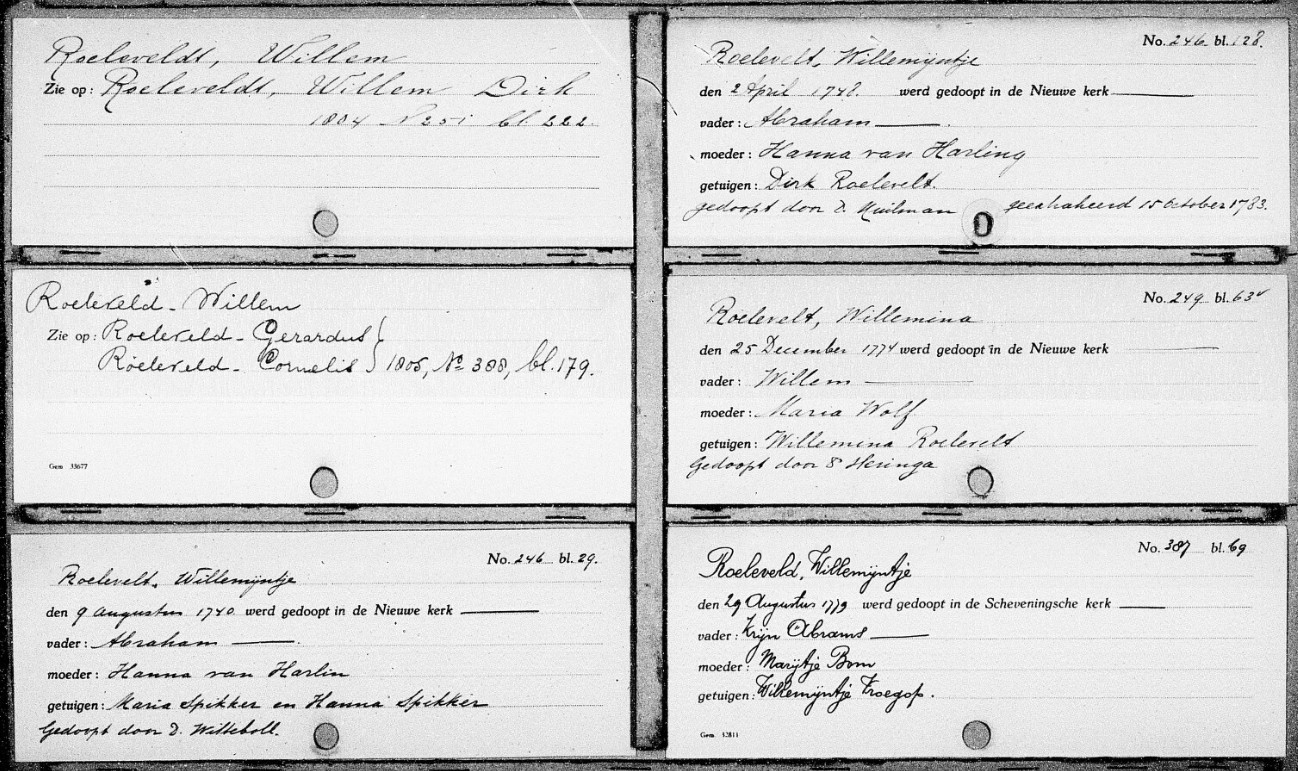 Roeleveldt, Willem
Zie op: Roeleveldt, Willem Dirk
1804 No 251 bl 222
Roeleveld - Willem
Zie op: Roeleveld - Gerardus }
Roeleveld - Cornelis } 1805, No 388, bl. 179.
Gem 33677
No. 246 bl. 29.
Roelevelt, Willemijntje
den 9 Augustus 1740 werd gedoopt in de Nieuwe kerk
vader: Abraham
moeder: Hanna van Harlin
getuigen: Maria Spikker en Hanna Spikker
Gedoopt door D. Witteboll.
No. 246 bl. 128.
Roelevelt, Willemijntje
den 2 April 1748. werd gedoopt in de Nieuwe kerk
vader: Abraham
moeder: Hanna van Harling
getuigen: Dirk Roelevelt.
gedoopt door D. Kuilman geextraheerd 15 October 1783.
No. 249 bl. 634
Roelevelt, Willemina
den 25 December 1774 werd gedoopt in de Nieuwe kerk
vader: Willem
moeder: Maria Wolf
getuigen: Willemina Roelevelt
Gedoopt door Heringa
No. 387 bl. 69
Roeleveld, Willemijntje
den 29 Augustus 1779 werd gedoopt in de Scheveningsche kerk
vader: Krijn Abrams
moeder: Marijtje Bom
getuigen: Willemijntje Kroegop.
Gem 52811